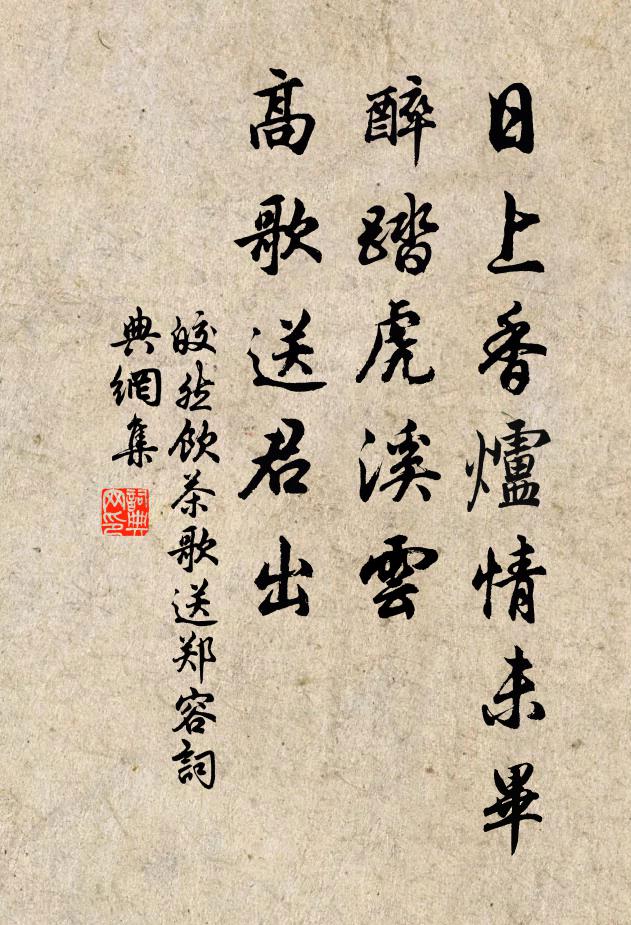 日上香爐情未畢
醉踏虎溪雲
高歌送君出
皎然飲茶歌送郑容詞
典網集
詞典网印